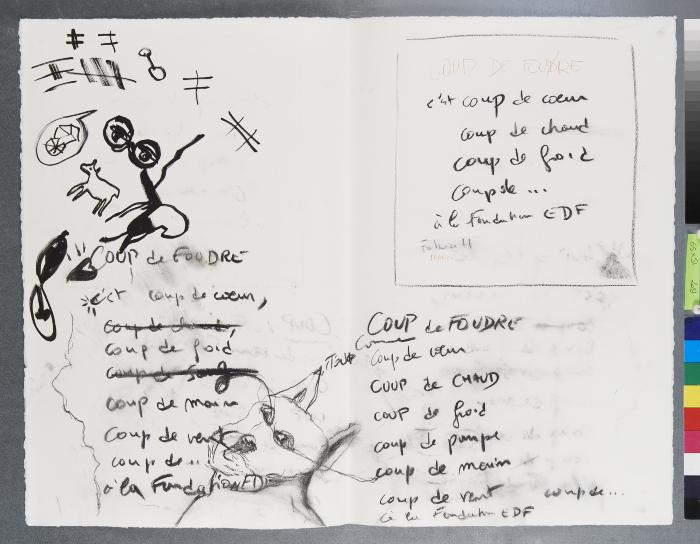 COUP de FOUDRE
c'est coup de coeur,
coup de chaud,
coup de froid
coup de sang
coup de main
coup de vent
coup de...
à la Fondation EDF
COUP DE FOUDRE
c'est coup de coeur
coup de chaud
coup de froid
coup de ...
à la Fondation EDF
COUP de FOUDRE
Coup de coeur
COUP de CHAUD
COUP de froid
coup de pompe
coup de main
coup de vent coup de...
à la Fondation EDF